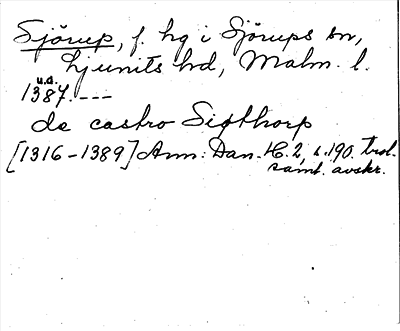 Sjörup, f. hg i Sjörups sn,
Ljunits hd, Malm. l.
u.a.
1387. ---
de castro Sigthorp
[1316-1389] Ann. Dan. H. 2, s. 190. trol.
saml. avskr.